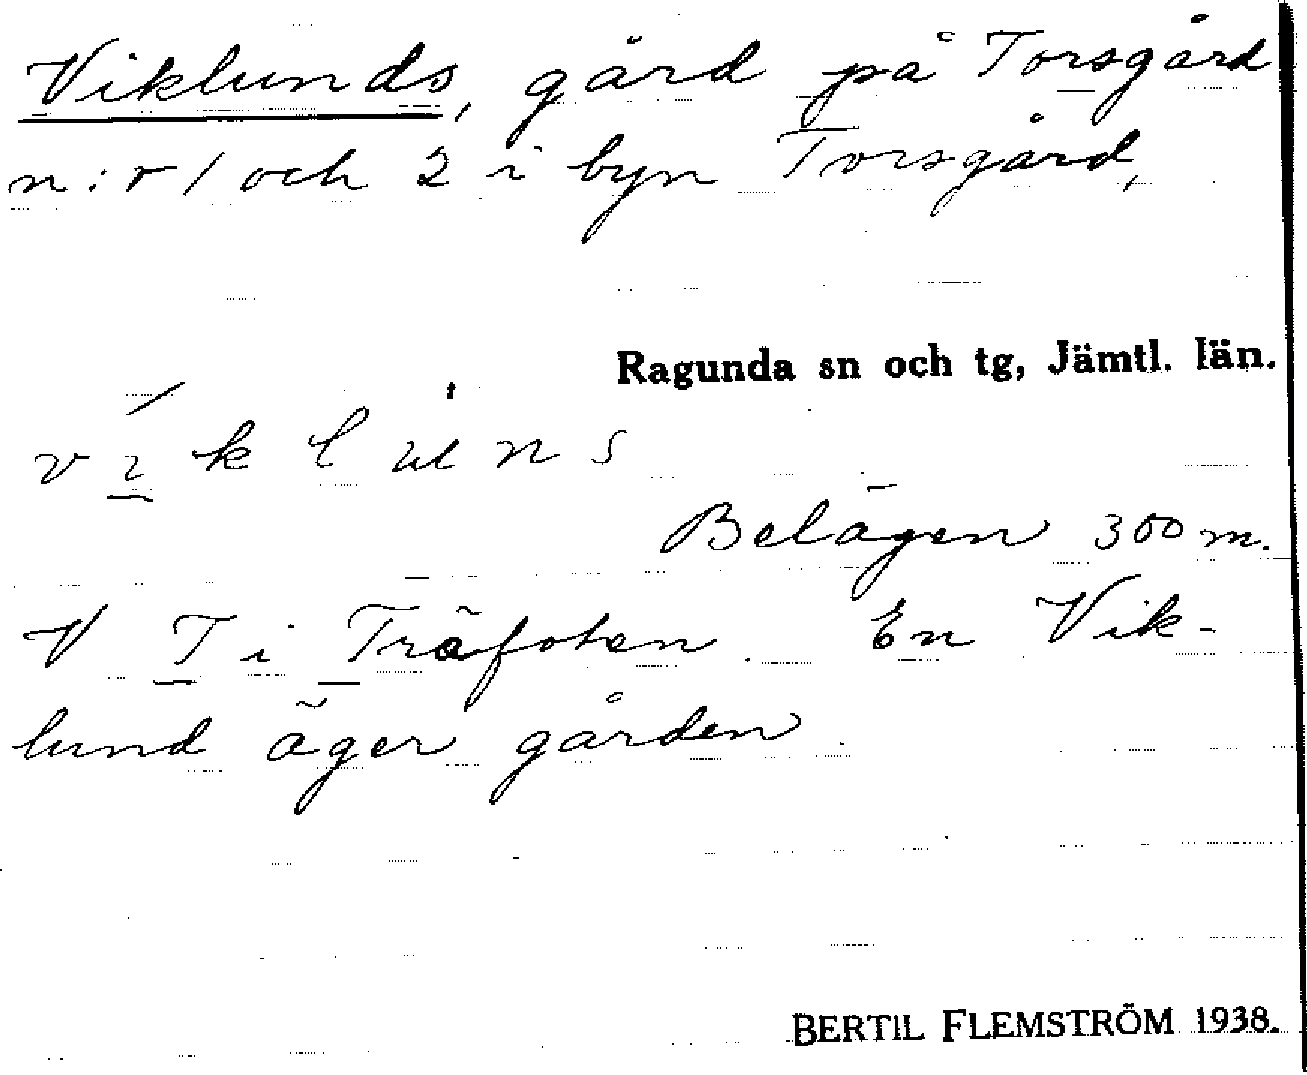 Viklunds, gård på Torsgård
n:r 1 och 2 i byn Torsgård,
Ragunda sn och tg, Jämtl. län.
v i k l u n s
Belägen 300 m.
V T i Träfoten. En Vik-
lund äger gården.
BERTIL FLEMSTRÖM 1938.